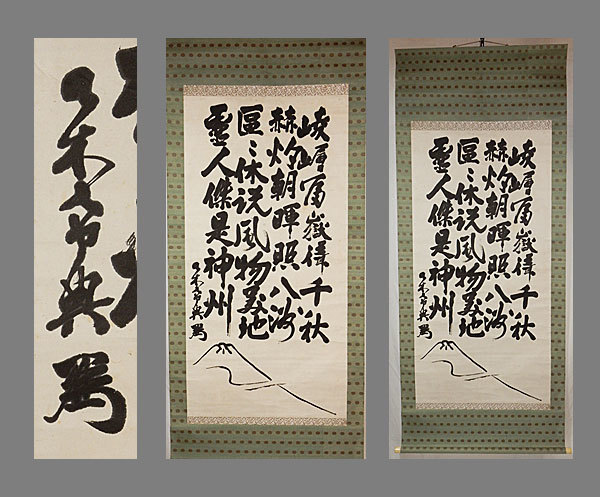 乃木希典
崚嶒富嶽千秋
赫灼朝暉照八洲
區々休説風物美地
靈人傑是神州
乃木希典
崚嶒富嶽千秋
赫灼朝暉照八洲
區々休説風物美地
靈人傑是神州
乃木希典